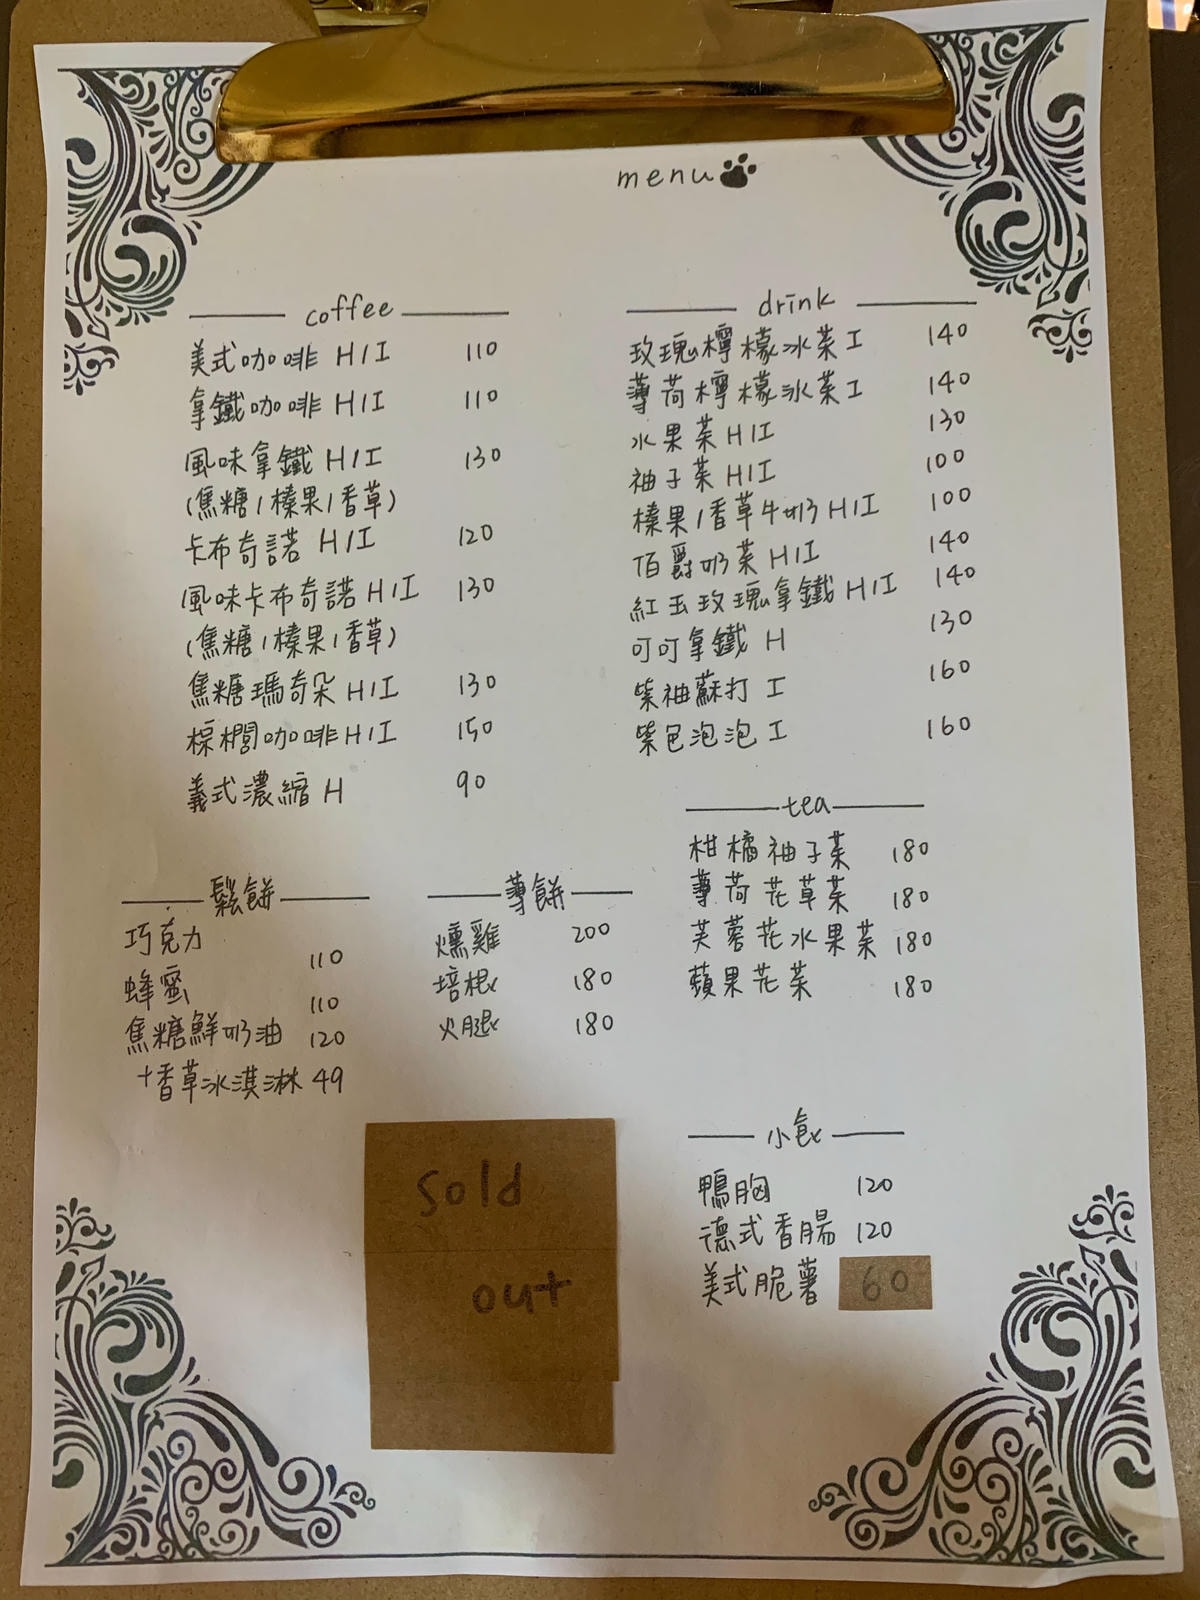 menu
coffee
美式咖啡 H/I 110
拿鐵咖啡 H/I 110
風味拿鐵 H/I 130
(焦糖/榛果/香草)
卡布奇諾 H/I 120
風味卡布奇諾 H/I 130
(焦糖/榛果/香草)
焦糖瑪奇朵 H/I 130
棕櫚咖啡 H/I 150
義式濃縮 H 90
drink
玫瑰檸檬冰茶 I 140
薄荷檸檬冰茶 I 140
水果茶 H/I 130
柚子茶 H/I 100
榛果/香草牛奶 H/I 100
伯爵奶茶 H/I 140
紅玉玫瑰拿鐵 H/I 140
可可拿鐵 H 130
紫柚蘇打 I 160
紫色泡泡 I 160
tea
柑橘柚子茶 180
薄荷花草茶 180
芙蓉花水果茶 180
蘋果花茶 180
鬆餅
巧克力 110
蜂蜜 110
焦糖鮮奶油 120
+香草冰淇淋 49
薄餅
燻雞 200
培根 180
火腿 180
Sold
out
小食
鴨胸 120
德式香腸 120
美式脆薯 60